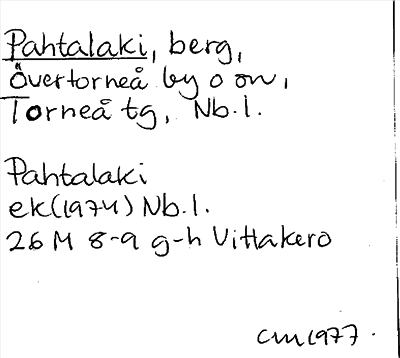 Pahtalaki, berg,
Övertorneå by o sn,
Torneå tg, Nb.l.
Pahtalaki
ek(1974) Nb.l.
26 M 8-9 g-h Vittakero
CM 1977.